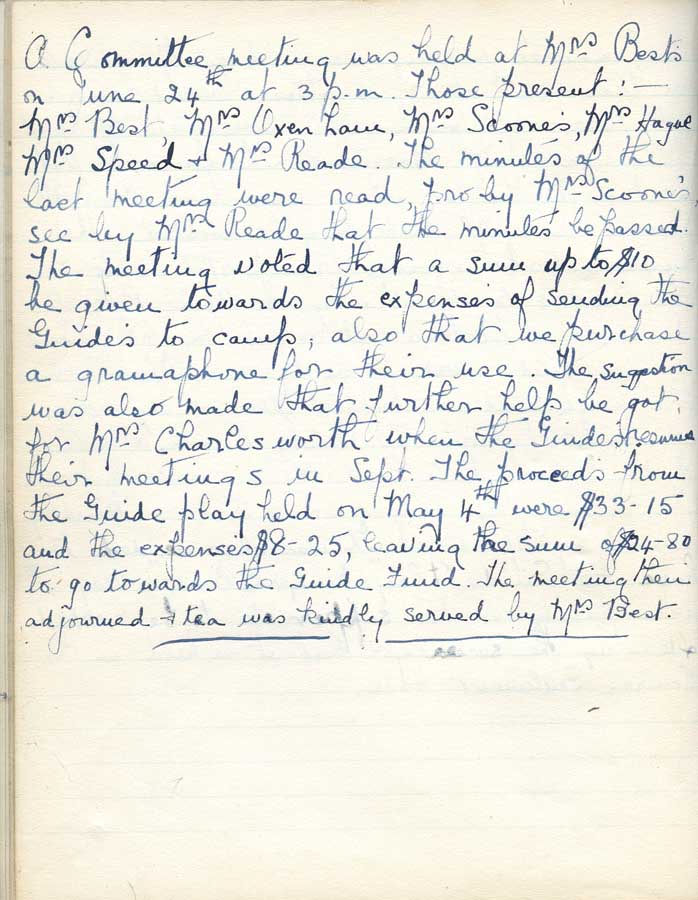 A Committee meeting was held at Mrs Best's
on June 24th at 3 p.m. Those present :—
Mrs Best, Mrs Oxenham, Mrs Scoones, Mrs Hague
Mrs Speed + Mrs Reade. The minutes of the
last meeting were read, pro by Mrs Scoones,
sec by Mrs Reade that the minutes be passed.
The meeting voted that a sum up to $10
be given towards the expenses of sending the
Guides to camp, also that we purchase
a gramaphone for their use. The suggestion
was also made that further help be got
for Mrs Charlesworth when the Guides resumes
their meetings in Sept. The proceeds from
the Guide play held on May 4th were $33-15
and the expenses $8-25, leaving the sum of $24-80
to go towards the Guide Fund. The meeting then
adjourned + tea was kindly served by Mrs Best.